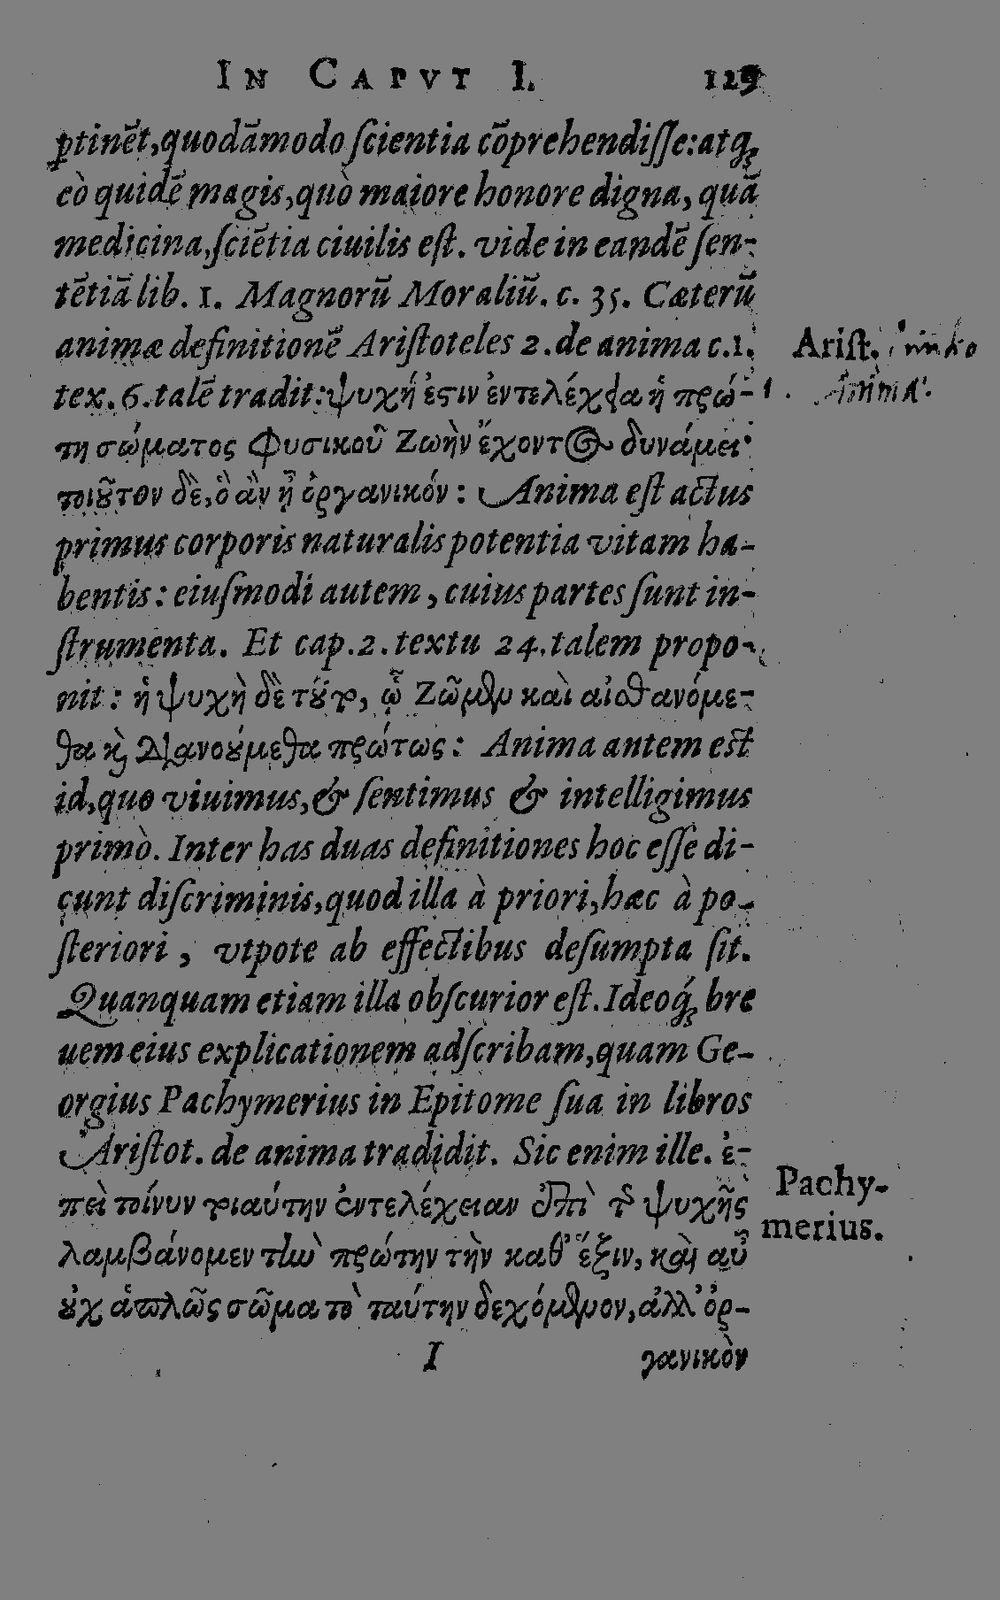 IN CAPVT I. 129
ꝑtinēt, quodāmodo ſcientia cōprehendiſſe: atq;
eò quidē magis, quò maiore honore digna, quā
medicina, ſciētia ciuilis eſt. vide in eandē ſen-
tētiā lib. 1. Magnorū Moraliū. c. 35. Cæterū
animæ definitionē Ariſtoteles 2. de anima c. 1.
Ariſt.
tex. 6. talē tradit: ψυχή ἐϛιν ἐντελέχεια ἡ πρώ-
τη σώματος φυσικοῦ ζωὴν ἔχοντος δυνάμει·
τοιοῦτον δὲ, ὃ ἂν ᾖ ὀργανικόν: Anima eſt actus
primus corporis naturalis potentia vitam ha-
bentis: eiuſmodi autem, cuius partes ſunt in-
ſtrumenta. Et cap. 2. textu 24. talem propo-
nit: ἡ ψυχὴ δὲ τοῦτο, ᾧ ζῶμεν καὶ αἰσθανόμε-
θα καὶ διανοούμεθα πρώτως: Anima antem eſt
id, quo viuimus, & ſentimus & intelligimus
primò. Inter has duas definitiones hoc eſſe di-
cunt diſcriminis, quod illa à priori, hæc à po-
ſteriori, vtpote ab effectibus deſumpta ſit.
Quanquam etiam illa obſcurior eſt. Ideoq́; bre
uem eius explicationem adſcribam, quam Ge-
orgius Pachymerius in Epitome ſua in libros
Ariſtot. de anima tradidit. Sic enim ille. ἐ-
Pachy-
merius.
πεὶ τοίνυν τοιαύτην ἐντελέχειαν ἐπὶ τῆς ψυχῆς
λαμβάνομεν τὴν πρώτην τὴν καθ' ἕξιν, καὶ αὖ
οὐχ ἁπλῶς σῶμα τὸ ταύτην δεχόμενον, ἀλλ' ὀρ-
I γανικὸν